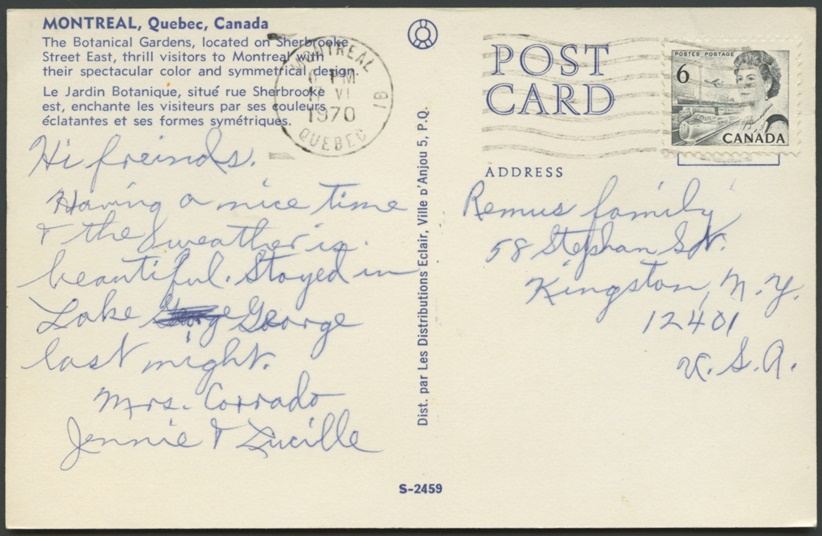 MONTREAL, Quebec, Canada
The Botanical Gardens, located on Sherbrooke
Street East, thrill visitors to Montreal with
their spectacular color and symmetrical design.
Le Jardin Botanique, situé rue Sherbrooke
est, enchante les visiteurs par ses couleurs
éclatantes et ses formes symétriques.
MONTREAL
PM
VI
1970
QUEBEC
POST
CARD
POSTES POSTAGE
6
CANADA
ADDRESS
Hi freinds.
Having a nice time
& the weather is
beautiful. Stayed in
Lake George
last night.
Mrs. Corrado
Jennie & Lucille
Dist. par Les Distributions Eclair, Ville D'Anjou 5, P.Q.
Remus family
58 Stephan St.
Kingston, N.Y.
12401
U.S.A.
S-2459